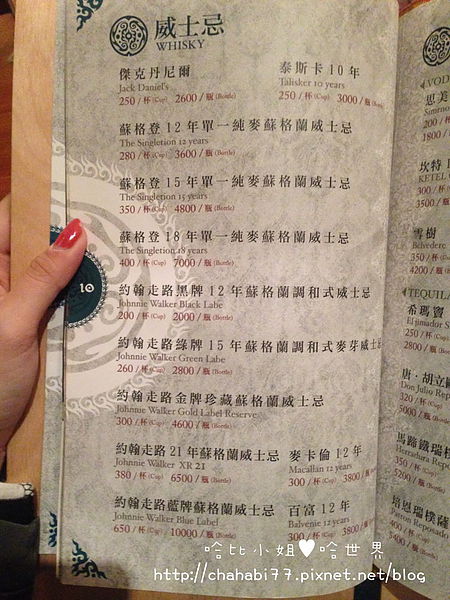 威士忌
WHISKY
傑克丹尼爾
Jack Daniel's
250/杯(Cup) 2600/瓶(Bottle)
泰斯卡10年
Talisker 10 years
250/杯(Cup) 3000/瓶(Bottle)
蘇格登12年單一純麥蘇格蘭威士忌
The Singletion 12 years
280/杯(Cup) 3600/瓶(Bottle)
蘇格登15年單一純麥蘇格蘭威士忌
The Singletion 15 years
350/杯(Cup) 4800/瓶(Bottle)
蘇格登18年單一純麥蘇格蘭威士忌
The Singletion 18 years
400/杯(Cup) 7000/瓶(Bottle)
約翰走路黑牌12年蘇格蘭調和式威士忌
Johnnie Walker Black Labe
200/杯(Cup) 2000/瓶(Bottle)
約翰走路綠牌15年蘇格蘭調和式麥芽威士忌
Johnnie Walker Green Labe
260/杯(Cup) 2800/瓶(Bottle)
約翰走路金牌珍藏蘇格蘭威士忌
Johnnie Walker Gold Label Reserve
300/杯(Cup) 4600/瓶(Bottle)
約翰走路21年蘇格蘭威士忌
Johnnie Walker XR 21
380/杯(Cup) 6500/瓶(Bottle)
麥卡倫12年
Macallan 12 years
300/杯(Cup) 3800/瓶
約翰走路藍牌蘇格蘭威士忌
Johnnie Walker Blue Label
650/杯(Cup) 10000/瓶(Bottle)
百富12年
Balvenie 12 years
300/杯(Cup)
10
VOD
思美
Smirno
200/杯
1800/
坎特1
KETEL
300/杯
3500/
雪樹
Belvedere
350/杯
4200/瓶
TEQUIL
希瑪竇
Eljimador S
250/杯(Cup)
2800/瓶
唐·胡立歐
Don Julio Rep
320/杯(Cup)
5000/瓶
馬蹄鐵瑞
Herradura Repo
350/杯(Cup)
5200/瓶
培恩瑞樸薩
Patron Reposado
400/杯(Cup)
5400/瓶
哈比小姐♥哈世界
http://chahabi77.pixnet.net/blog